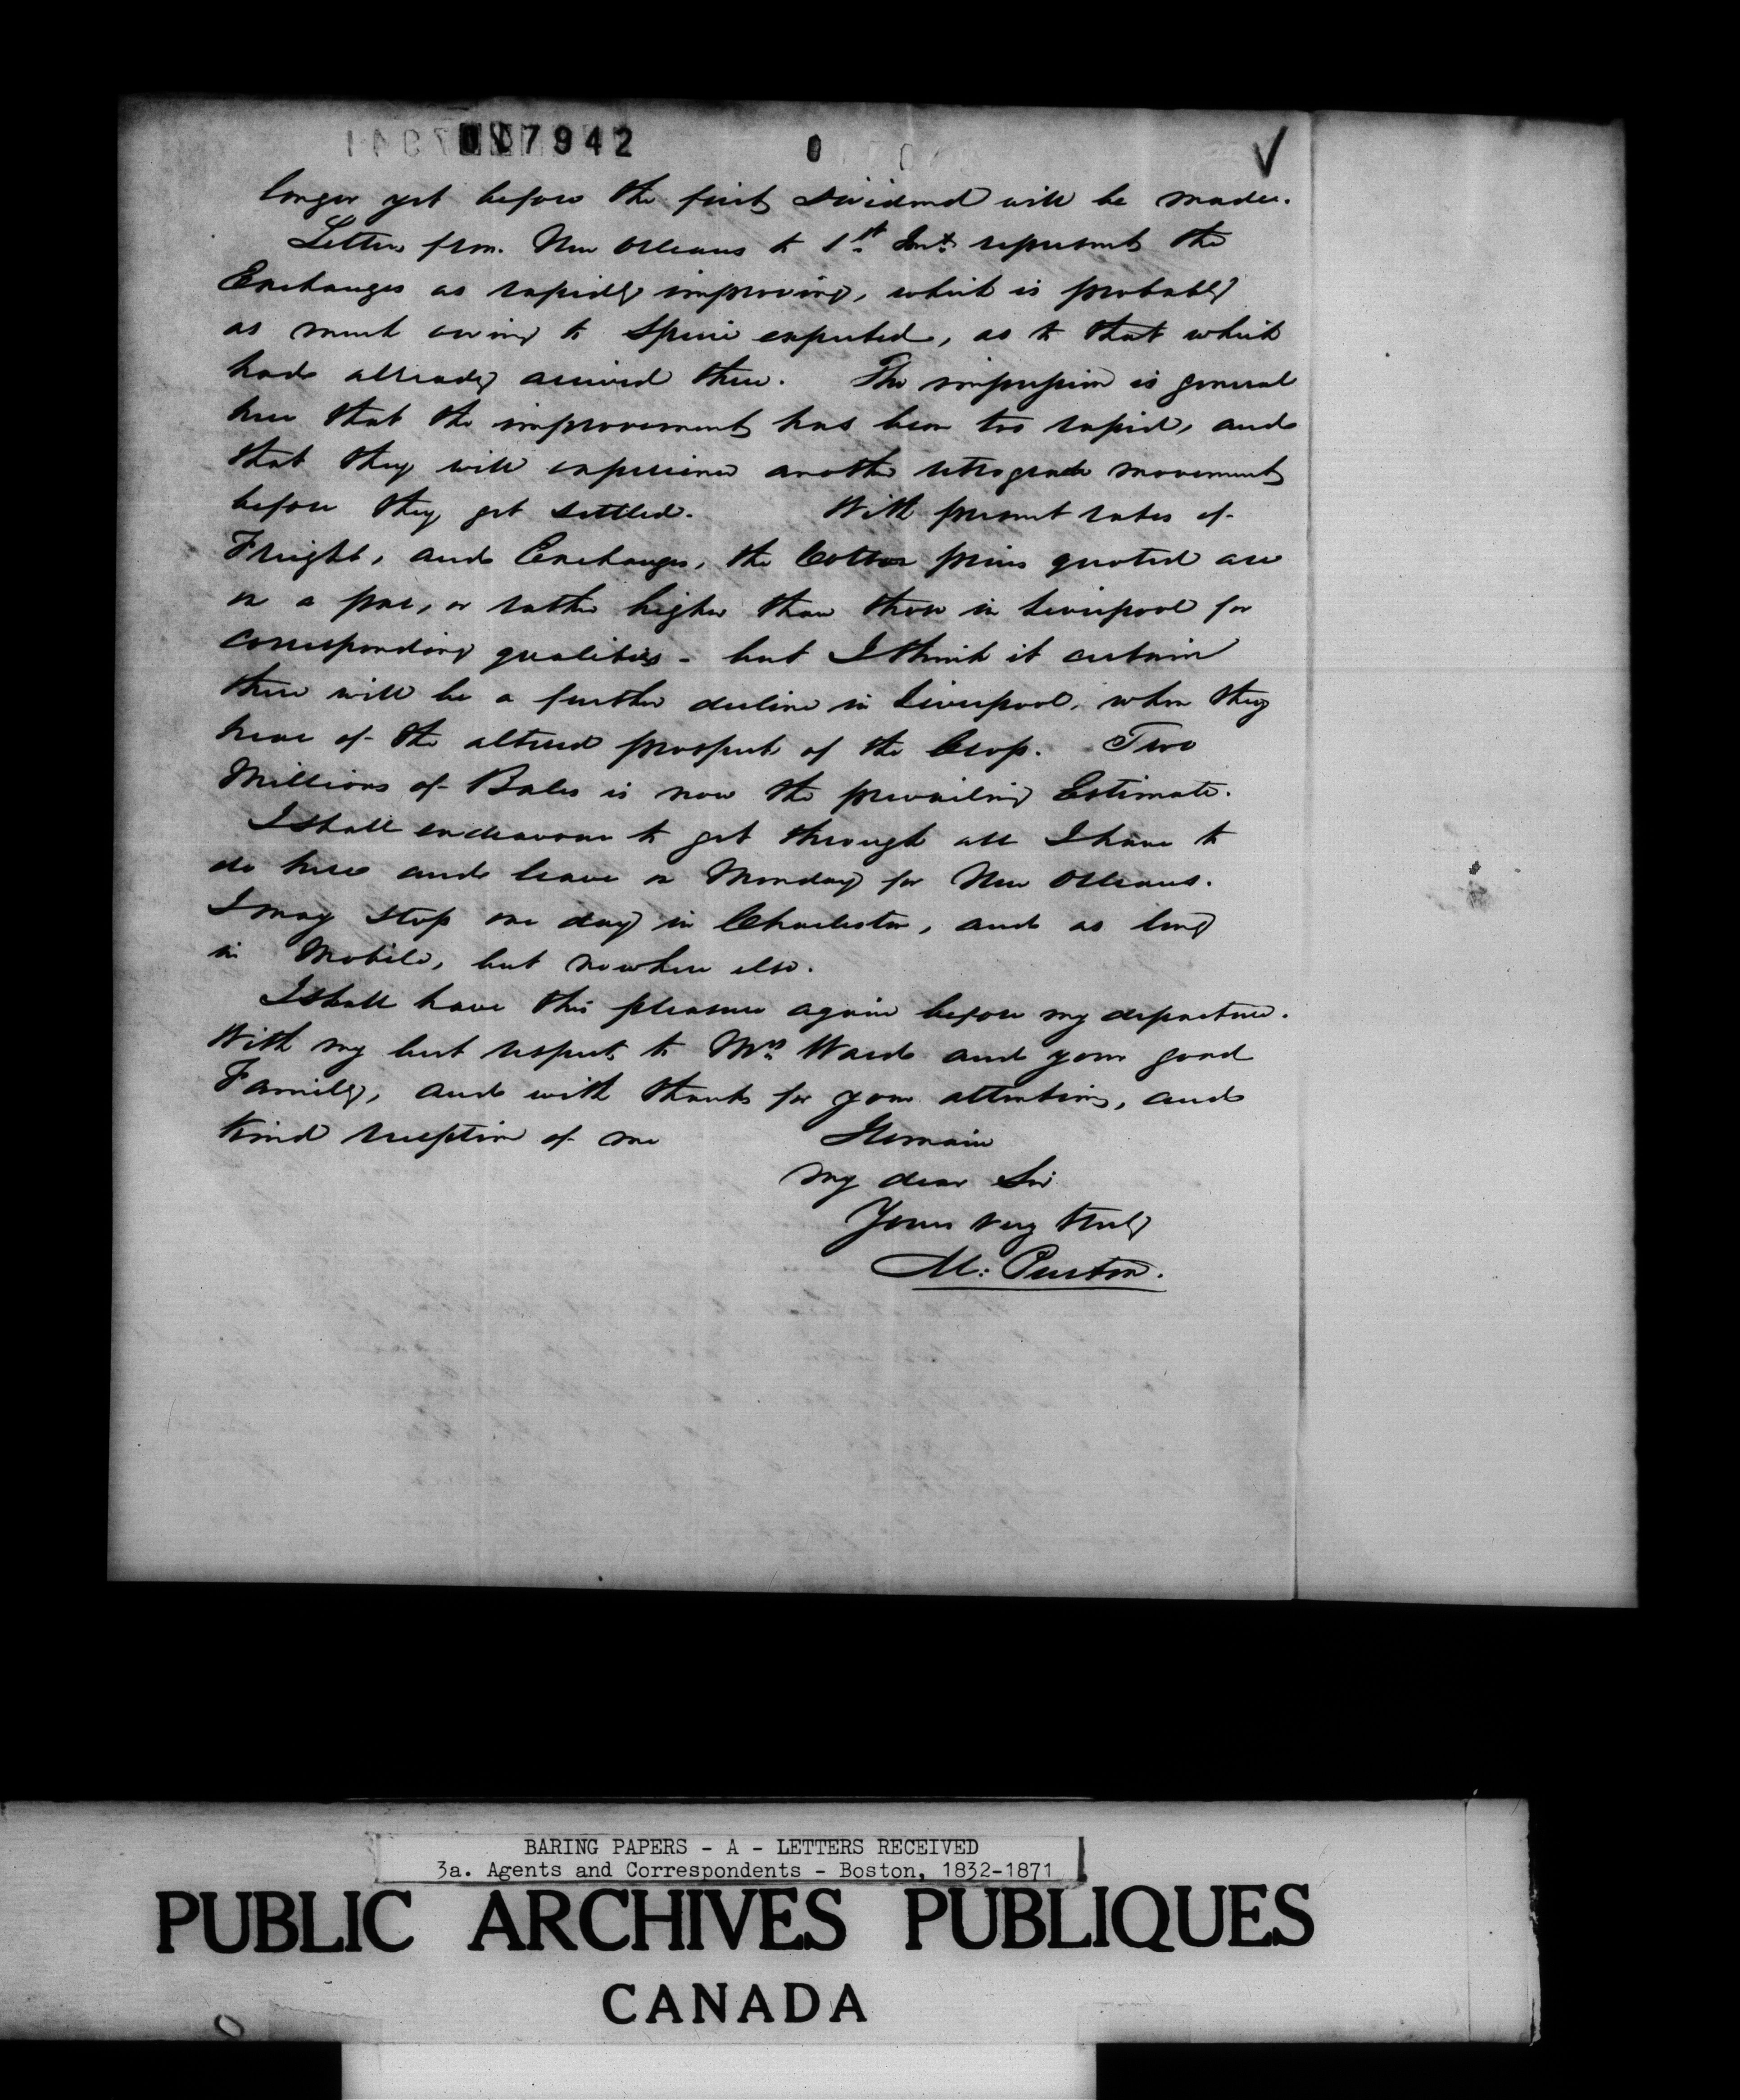 017942
longer yet before the first Dividend will be made.
Letters from New Orleans to 1st Inst represent the
Exchanges as rapidly improving, which is probably
as much owing to Specie expected, as to that which
had already arrived there. The impression is general
here that the improvement has been too rapid, and
that they will experience another retrograde movement
before they get settled. With present rates of
Freight, and Exchanges, the Cotton prices quoted are
on a par, or rather higher than those in Liverpool for
corresponding qualities - but I think it certain
there will be a further decline in Liverpool, when they
hear of the altered prospect of the Crop. Two
Millions of Bales is now the prevailing Estimate.
I shall endeavour to get through all I have to
do here and leave on Monday for New Orleans.
I may stop one day in Charleston, and as long
in Mobile, but nowhere else.
I shall have this pleasure again before my departure.
With my best respects to Mrs Ward and your good
Family, and with thanks for your attentions, and
kind reception of me I remain
My dear Sir
Yours very truly
BARING PAPERS - A - LETTERS RECEIVED
3a. Agents and Correspondents - Boston, 1832-1871
PUBLIC ARCHIVES PUBLIQUES
CANADA